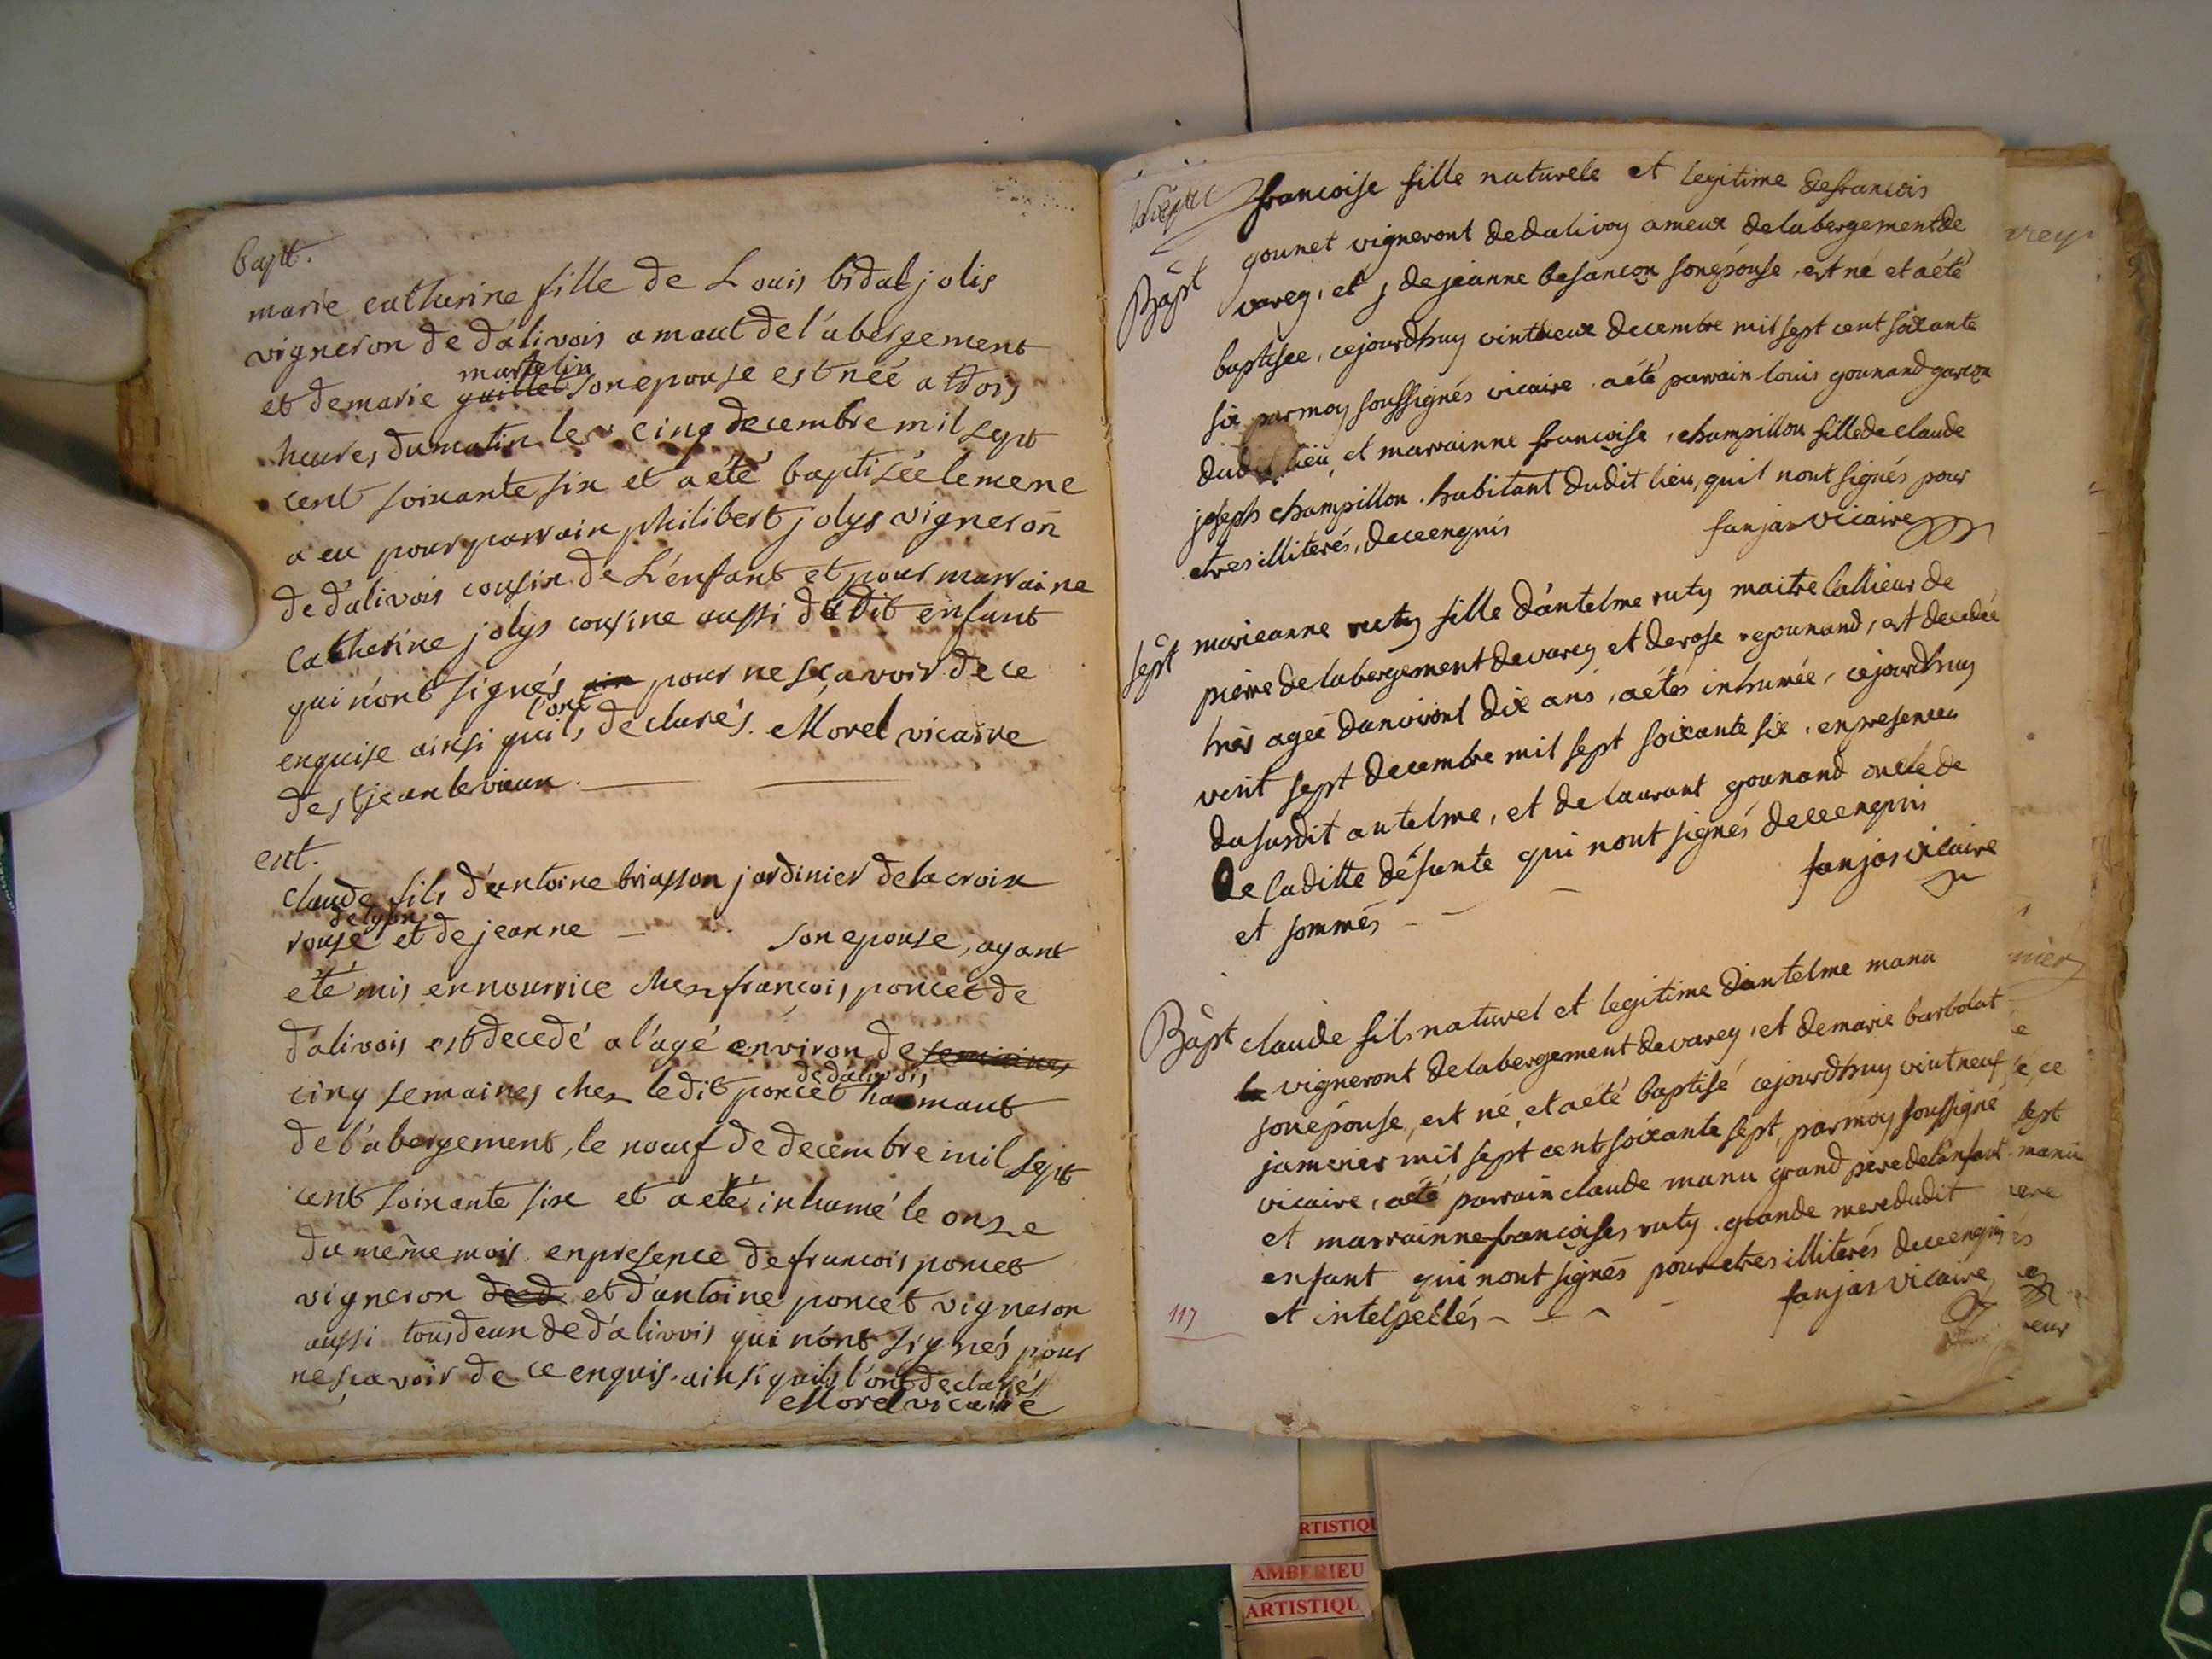 Bapt.
marie catherine fille de Louis bidal jolis
vigneron de dalivois amaut de l'abergement
martelin
et de marie guillet son epouse est née a trois
heures du matin le cinq decembre mil sept
cent soixante six et a été baptisée le meme
a eu pour parrain philibert jolys vigneron
de dalivois cousin de L'enfant et pour marraine
Catherine jolys cousine aussi dudit enfant
qui n'ont signés pour ne sçavoir de ce
l'ont
enquise ainsi quils declarés. Morel vicaire
de st jean le vieux.
ent.
Claude fils d'antoine briasson jardinier de la croix
de lyon
rouse et de jeanne son epouse, ayant
été mis en nourrice chez françois poncet de
dalivois est decedé a l'agé environ de semaines
de dalivois
cinq semaines chez ledit poncet hammaut
de l'abergement, le noeuf de decembre mil sept
cent soixante six et a eté inhumé le onze
du même mois en presence de francois poncet
vigneron de d et d'antoine poncet vigneron
aussi tous deux de d'alivois qui n'ont signés pour
ne sçavoir de ce enquis. ainsi quils l'ont declarés
Morel vicaire
francoise fille naturele et legitime de francois
gounet vigneront de dalivoy ameux de labergement de
Bapt varey, et j de jeanne besancon son épouse, est né et a été
baptisee, cejourdhuy vint deux decembre mil sept cent soixante
six par moy soussignés vicaire. a été parrain louis gounand garcon
dudit lieu, et marrainne francoise, champillon fille de claude
joseph champillon. habitant dudit lieu, quil nont signés pour
etres illiterés, de ce enquis fanjas vicaire
sept marieanne ruty fille d'antelme ruty maitre tallieur de
pierre de labergement de varey et de rose gounand, est decedée
hier ageé danviront dix ans, a étés inhumée, cejourdhuy
vint sept decembre mil sept soixante six, en presences
du susdit antelme, et de laurant gounand oncle de
de laditte défunte qui nont signés de ce enquis
et sommés fanjas vicaire
Bapt claude fils naturel et legitime dantelme manu
vigneront de labergement de varey, et de marie barbolat
son épouse, est né, et a été baptisé cejourdhuy vint neuf
jamvier mil sept cent soixante sept, par moy soussigné
vicaire, a été parrain claude manu grand pere de l'enfant
et marrainne francoises ruty. grande mere dudit
enfant qui nont signés pour etres illiterés de ce enquis
et intelpellés fanjas vicaire
117
varey
ce
sept
manu
eur
RTISTIQU
AMBERIEU
ARTISTIQU